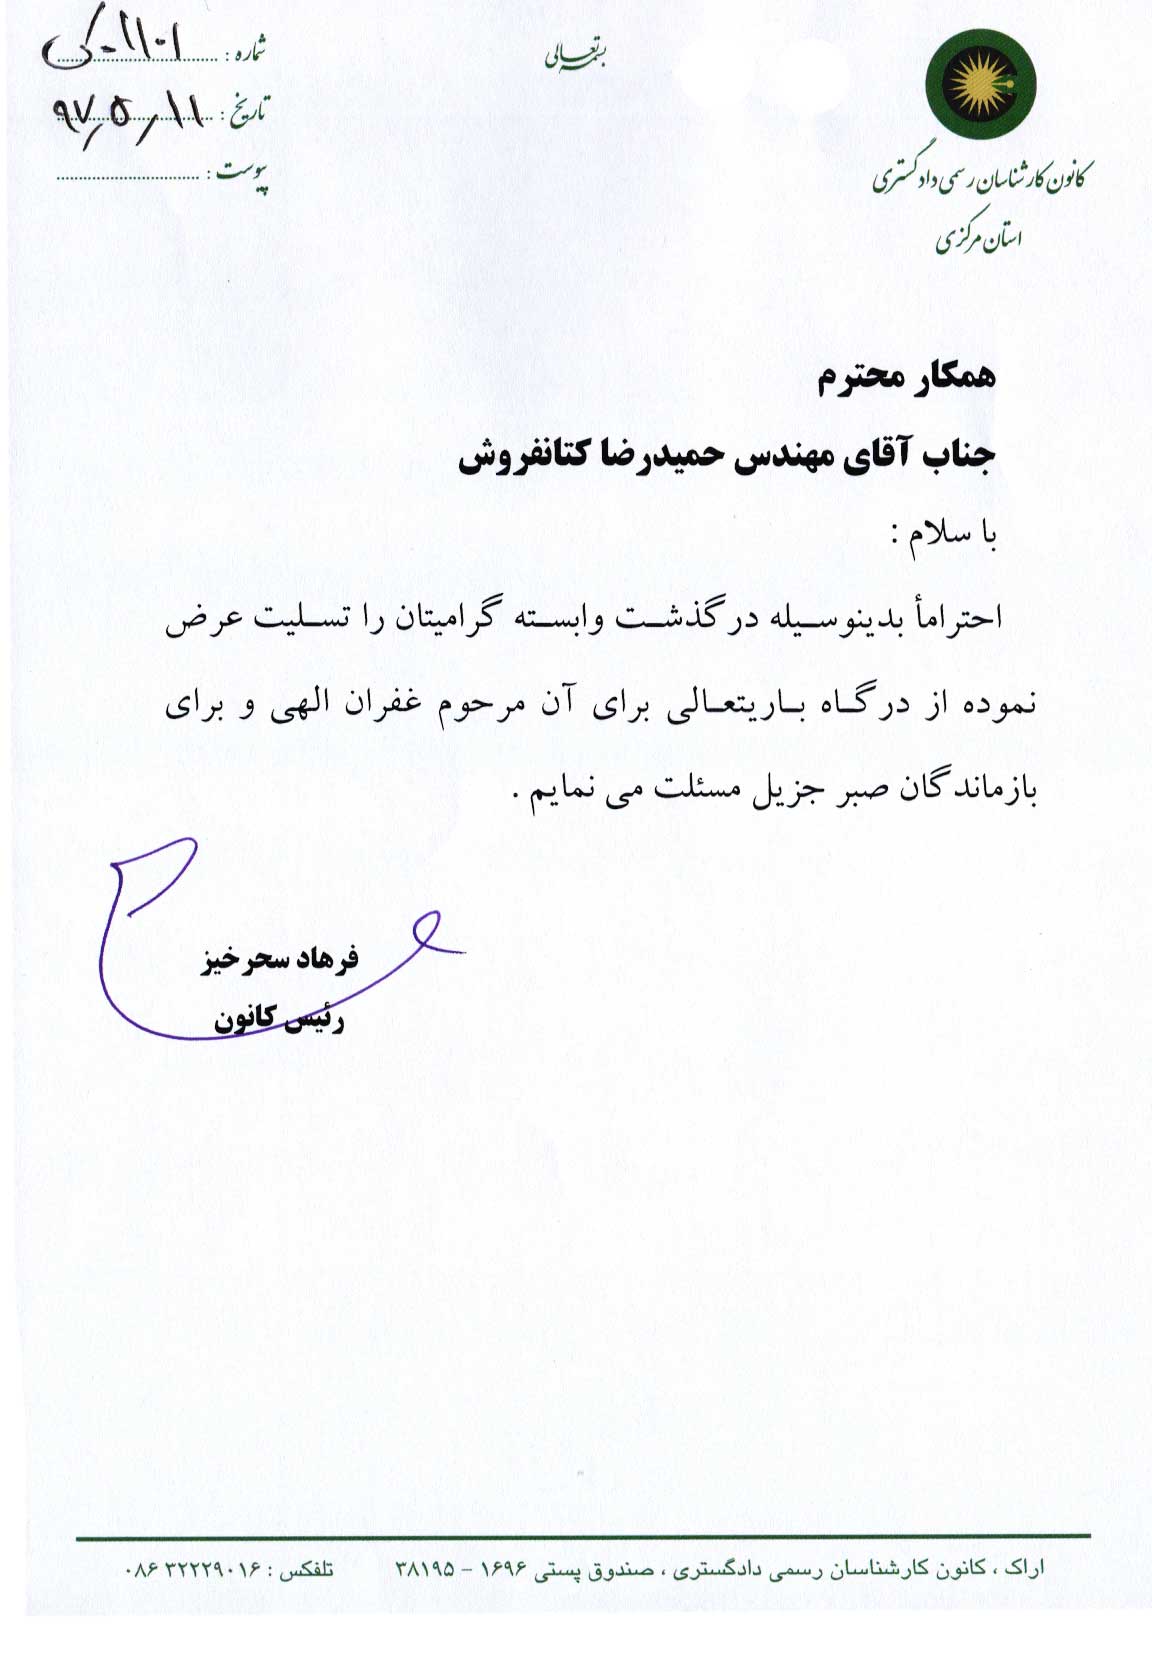 بسمه تعالی
کانون کارشناسان رسمی دادگستری
استان مرکزی
شماره :
تاریخ : ۹۷٫۵٫۱۱
پیوست :
همکار محترم
جناب آقای مهندس حمیدرضا کتانفروش
با سلام :
احتراماً بدینوسیله درگذشت وابسته گرامیتان را تسلیت عرض
نموده از درگاه باریتعالی برای آن مرحوم غفران الهی و برای
بازماندگان صبر جزیل مسئلت می نمایم .
فرهاد سحرخیز
رئیس کانون
اراک ، کانون کارشناسان رسمی دادگستری ، صندوق پستی ۱۶۹۶ - ۳۸۱۹۵ تلفکس : ۳۲۲۲۹۰۱۶ ۰۸۶